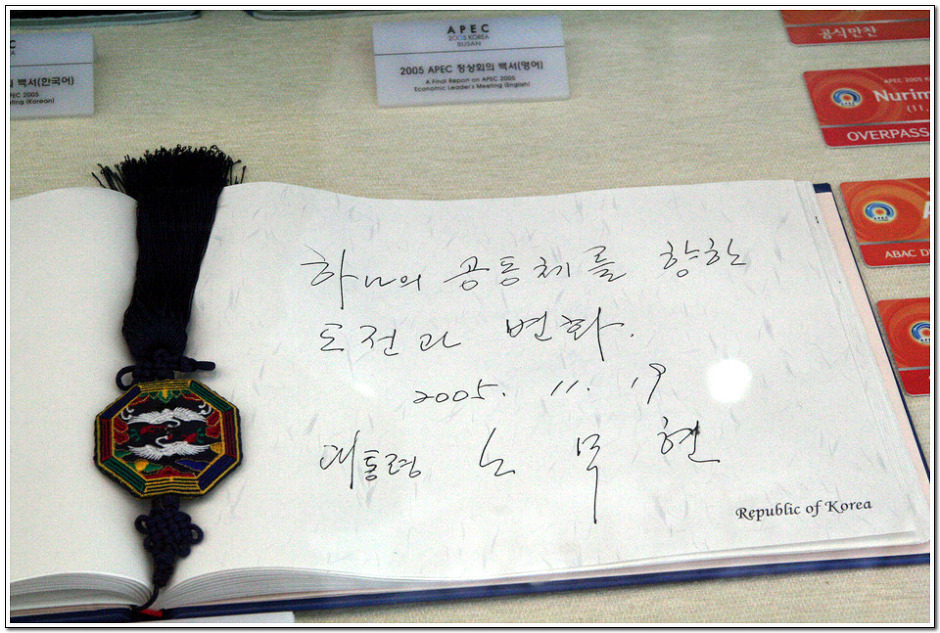 C
KOREA
백서(한국어)
PEC 2005
ting (Korean)
APEC
2005 KOREA
BUSAN
2005 APEC 정상회의 백서(영어)
A Final Report on APEC 2005
Economic Leader's Meeting (English)
공식만찬
APEC 2005 K
Nurim
(11.
OVERPASS
APEC
A
ABAC D
하나의 공동체를 향한
도전과 변화.
2005. 11. 19
대통령 노무현
Republic of Korea